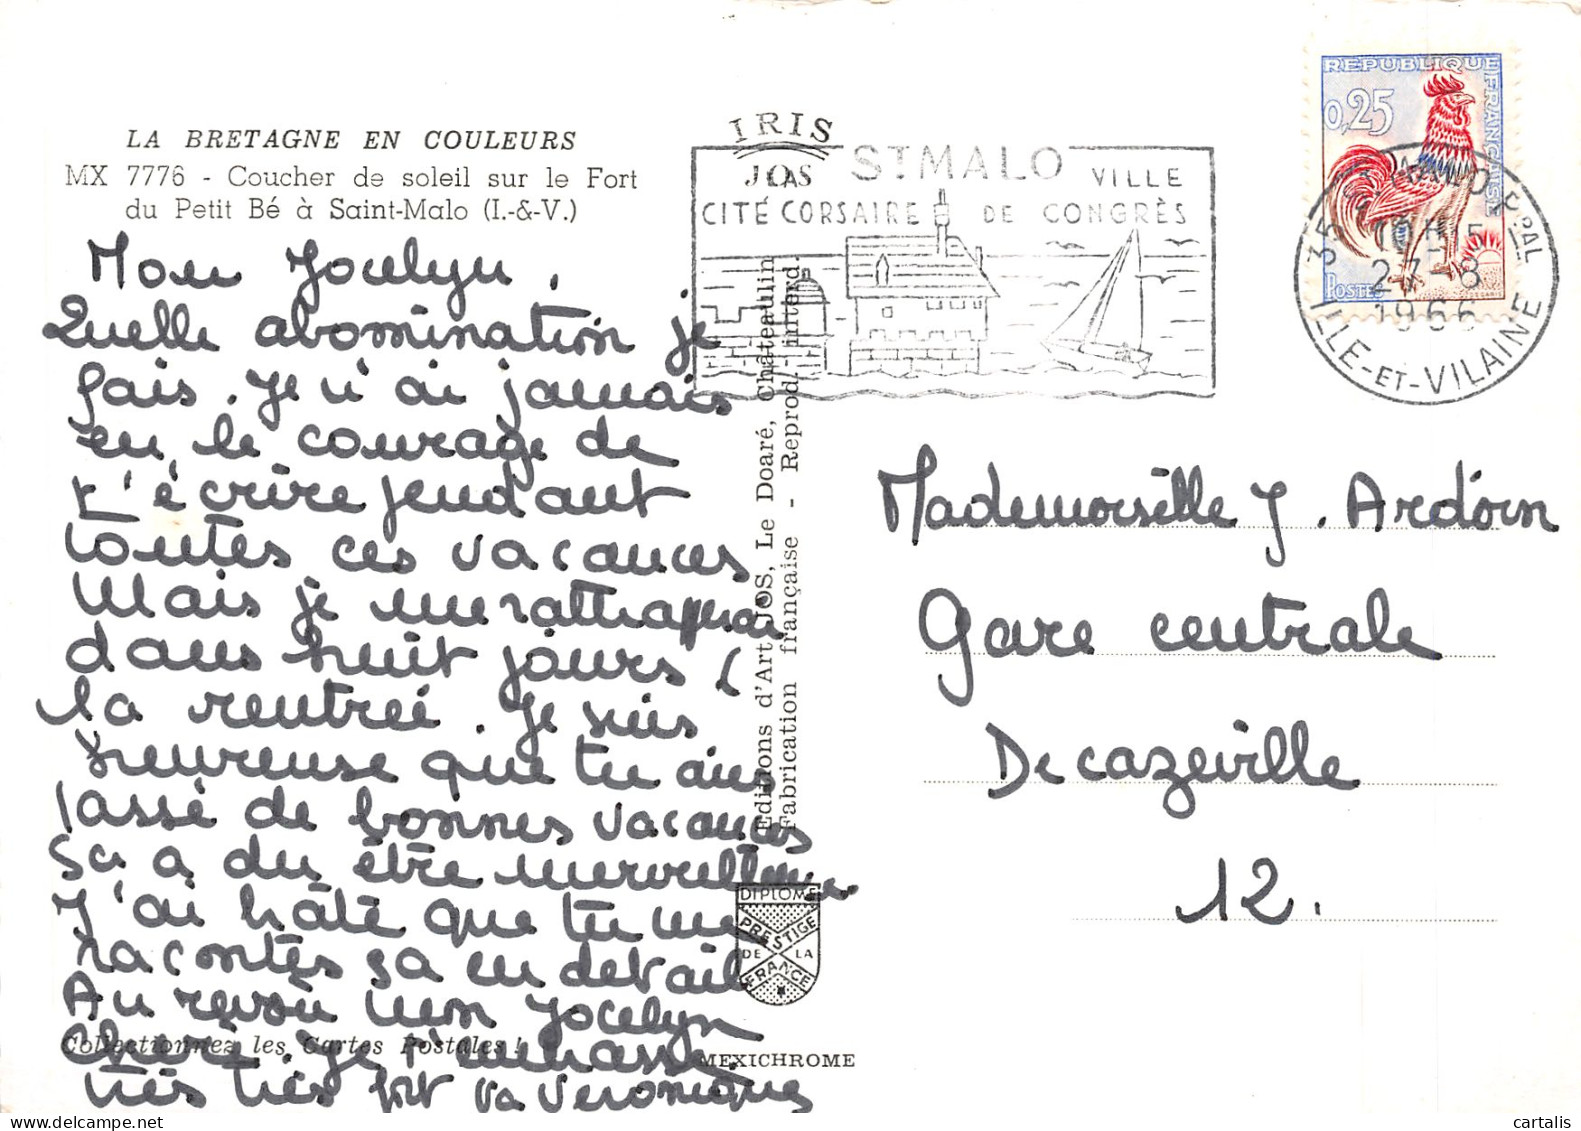 LA BRETAGNE EN COULEURS
MX 7776 - Coucher de soleil sur le Fort
du Petit Bé à Saint-Malo (I.-&-V.)
Mon Jocelyn,
Quelle abomination je
fais. Je n'ai jamais
eu le courage de
t'écrire pendant
toutes ces vacances
Mais je me rattraperai
dans huit jours (
la rentrée. Je suis
heureuse que tu aies
passé de bonnes vacances
sa a du être merveilleux
J'ai hâte que tu me
racontes sa en detail
Au revoir mon Jocelyn
chéri. je t'embrasse
très très fort ta Veronique
Collectionnez les Cartes Postales !
IRIS
JOS
ST MALO
LA
VILLE
CITÉ CORSAIRE
DE CONGRÈS
Editions d'Art JOS, Le Doaré, Châteaulin
Fabrication française - Reprod. interd.
DIPLOME
PRESTIGE
DE LA
FRANCE
MEXICHROME
REPUBLIQUE FRANÇAISE
0,25
POSTES
35 ST MALO PPAL
27-8
1966
ILLE-ET-VILAINE
Mademoiselle J. Ardorin
Gare centrale
Decazeville
12.
cartalis